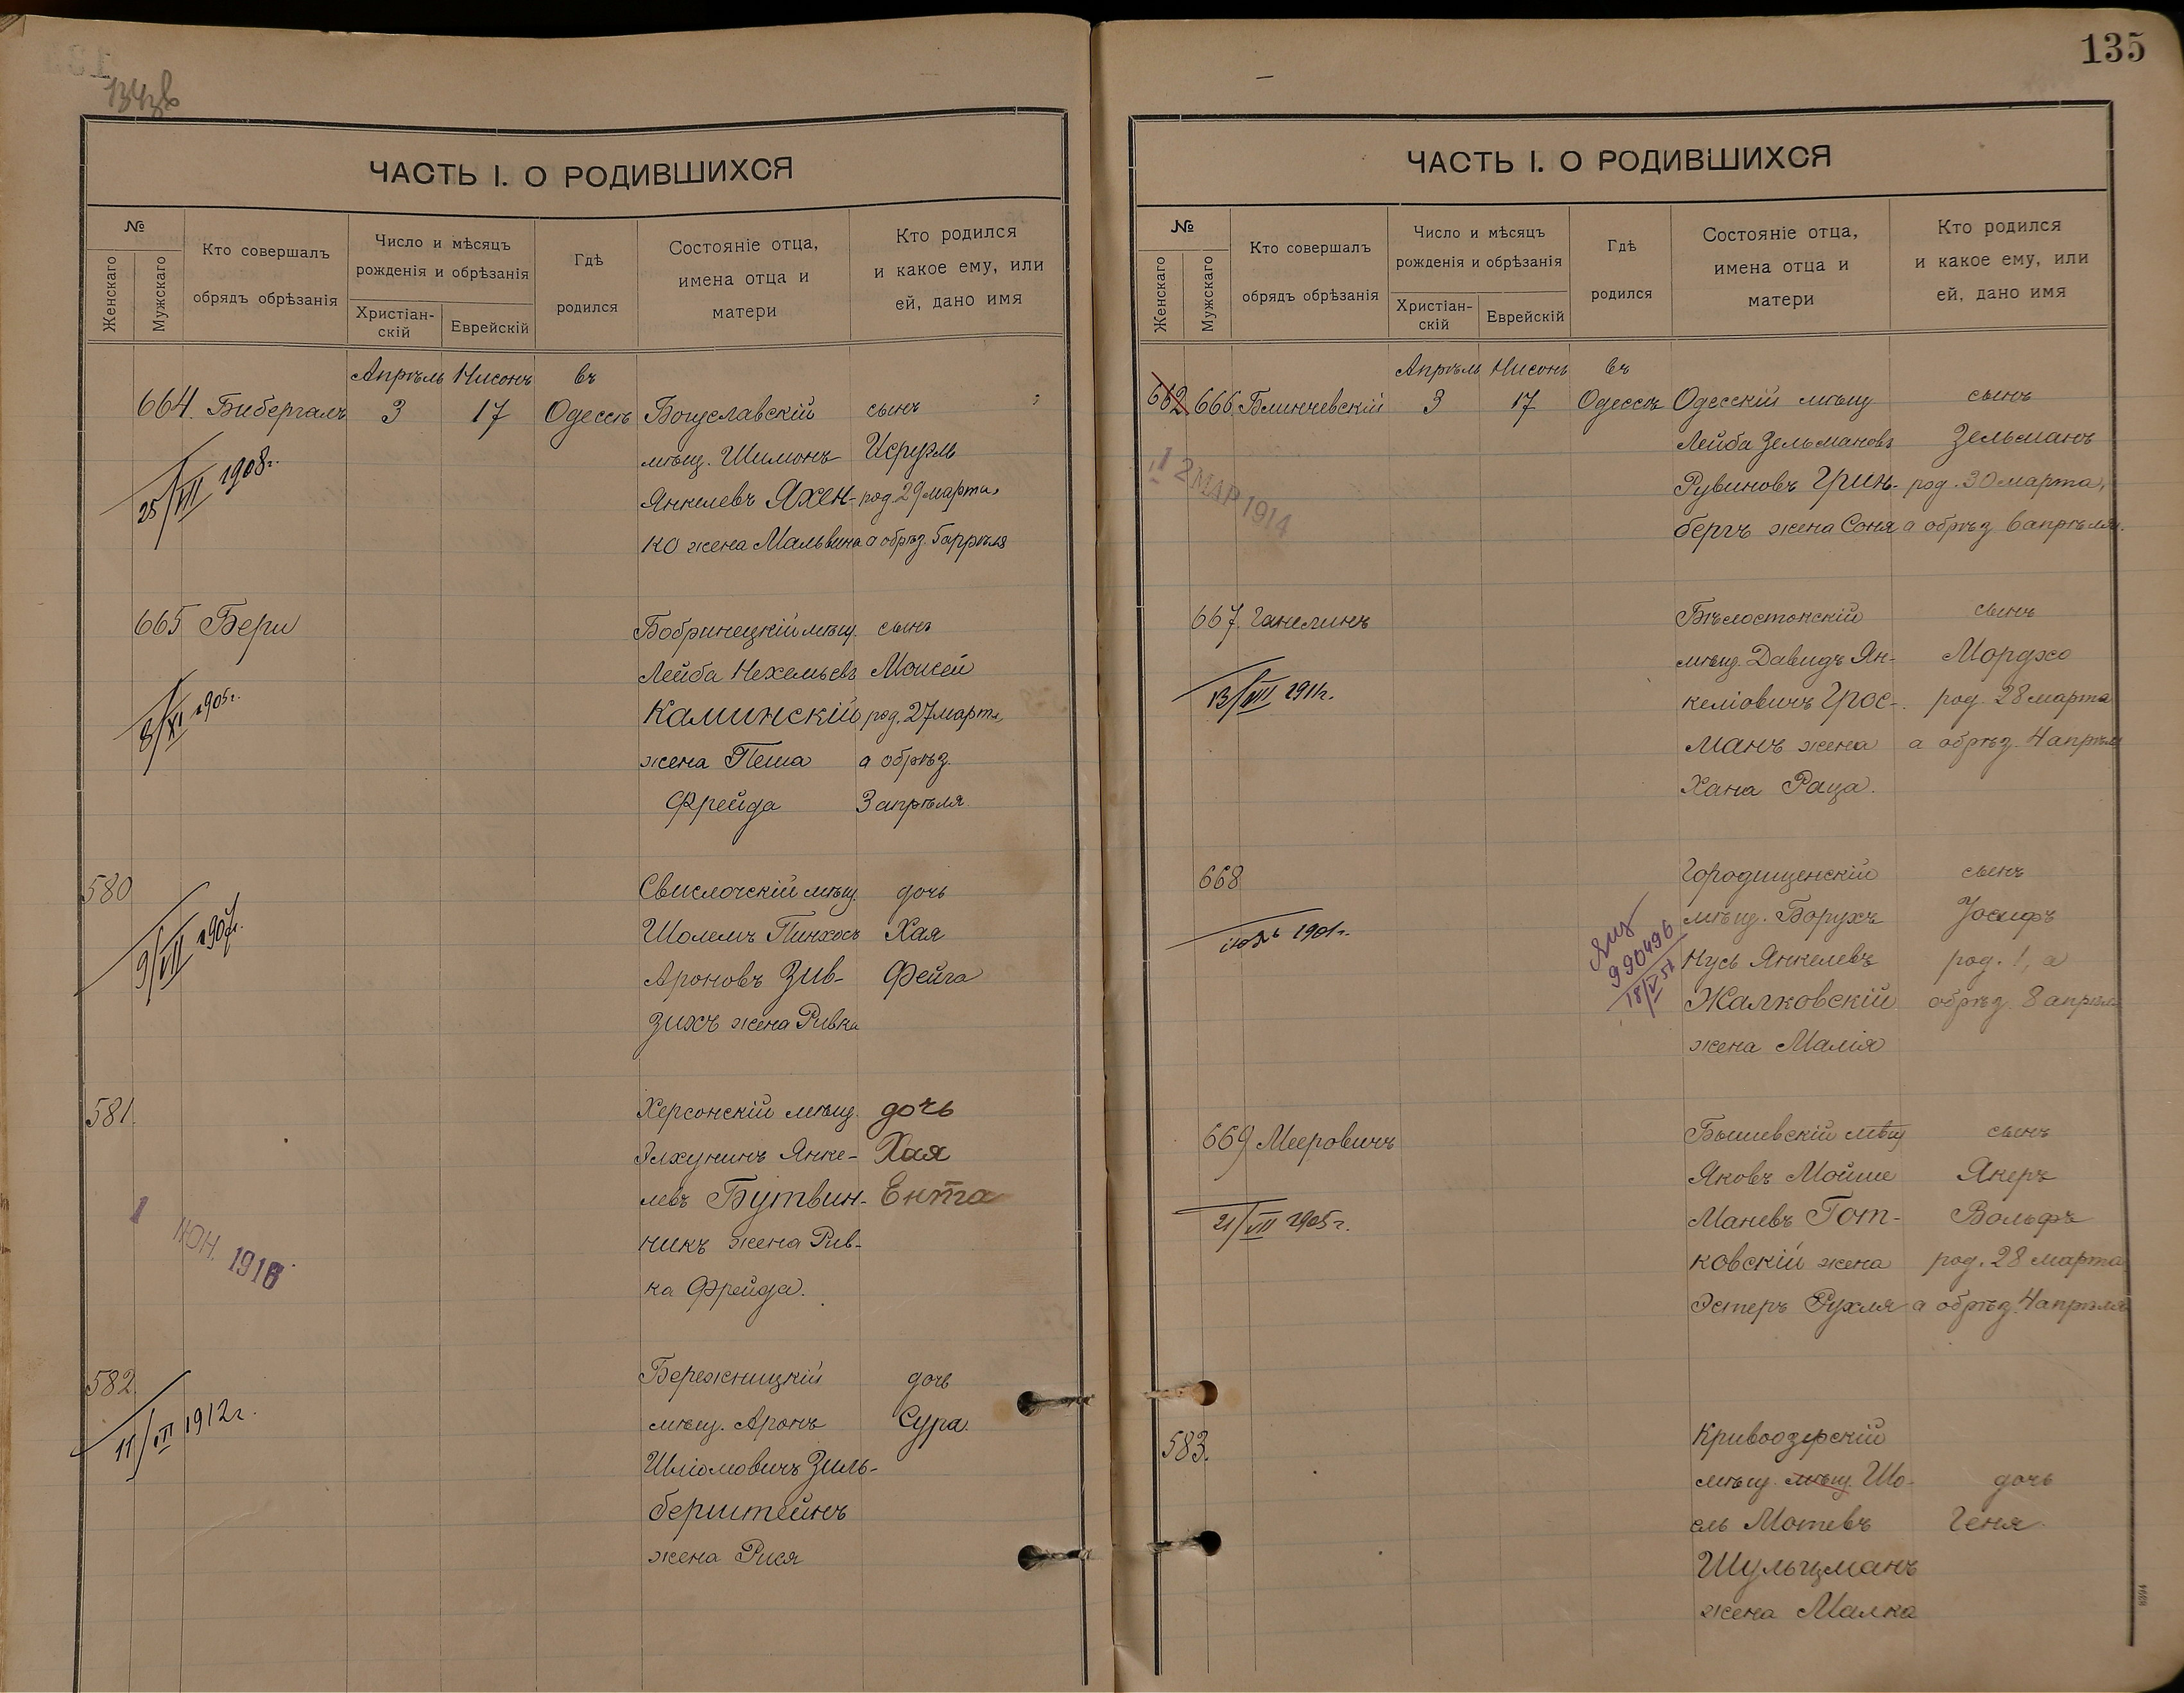 134об
ЧАСТЬ I. О РОДИВШИХСЯ
№
Женскаго
Мужскаго
Кто совершалъ
обрядъ обрѣзанія
Число и мѣсяцъ
рожденія и обрѣзанія
Христіан-
скій
Еврейскій
Гдѣ
родился
Состояніе отца,
имена отца и
матери
Кто родился
и какое ему, или
ей, дано имя
Апрѣль Нисонъ въ
664. Бибергалъ 3 17 Одессѣ Богуславскій сынъ
мѣщ. Шимонъ Исруэль
Янкелевъ Яхен- род. 29 марта,
ко жена Мальвина а обрѣз. 5 апрѣля
25/VIII 1908г.
665 Бери Бобринецкій мѣщ. сынъ
Лейба Нехемьевъ Моисей
Каминскій род. 27 марта,
жена Пеша а обрѣз.
Фрейда 3 апрѣля.
8/XI 1905г.
580 Свислочскій мѣщ. дочь
Шолемъ Пинхосъ Хая
Ароновъ Зив- Фейга
зихъ жена Ривка
9/VII 1907г.
581. Херсонскій мѣщ. дочь
Элхунинъ Янке- Хая
левъ Бутвин- Ента
никъ жена Рив-
ка Фрейда.
1 ІЮН. 1916
582. Бережницкій дочь
мѣщ. Аронъ Сура.
Шліомовичъ Зиль-
берштейнъ
жена Рися
11/VII 1912г.
135
ЧАСТЬ I. О РОДИВШИХСЯ
№
Женскаго
Мужскаго
Кто совершалъ
обрядъ обрѣзанія
Число и мѣсяцъ
рожденія и обрѣзанія
Христіан-
скій
Еврейскій
Гдѣ
родился
Состояніе отца,
имена отца и
матери
Кто родился
и какое ему, или
ей, дано имя
Апрѣль Нисонъ въ
662 666. Блинчевскій 3 17 Одессѣ Одесскій мѣщ сынъ
Лейба Зельмановъ Зельманъ
Рувиновъ Грин- род. 30 марта,
бергъ жена Соня а обрѣз. 6 апрѣля.
12 МАР 1914
667. Ганелинъ Бѣлостокскій сынъ
мѣщ. Давидъ Ян- Мордхо
келіовичъ Грос- род. 28 марта
манъ жена а обрѣз. 4 апрѣля
Хана Раца.
13/VIII 1911г.
668 Городищенскій сынъ
мѣщ. Борухъ Іосифъ
Нусь Янкелевъ род. 1, а
Жалковскій обрѣз. 8 апрѣля
жена Малія
іюль 1901г.
990496
18/V 51
669 Мееровичъ Бышевскій мѣщ сынъ
Яковъ Мойше Якеръ
Маневъ Гот- Вольфъ
ковскій жена род. 28 марта
Эстеръ Рухля а обрѣз. 4 апрѣля
21/VII 1905г.
583. Кривоозерскій
мѣщ. мѣщ. Шо- дочь
ель Мотевъ Геня.
Шульцманъ
жена Малка